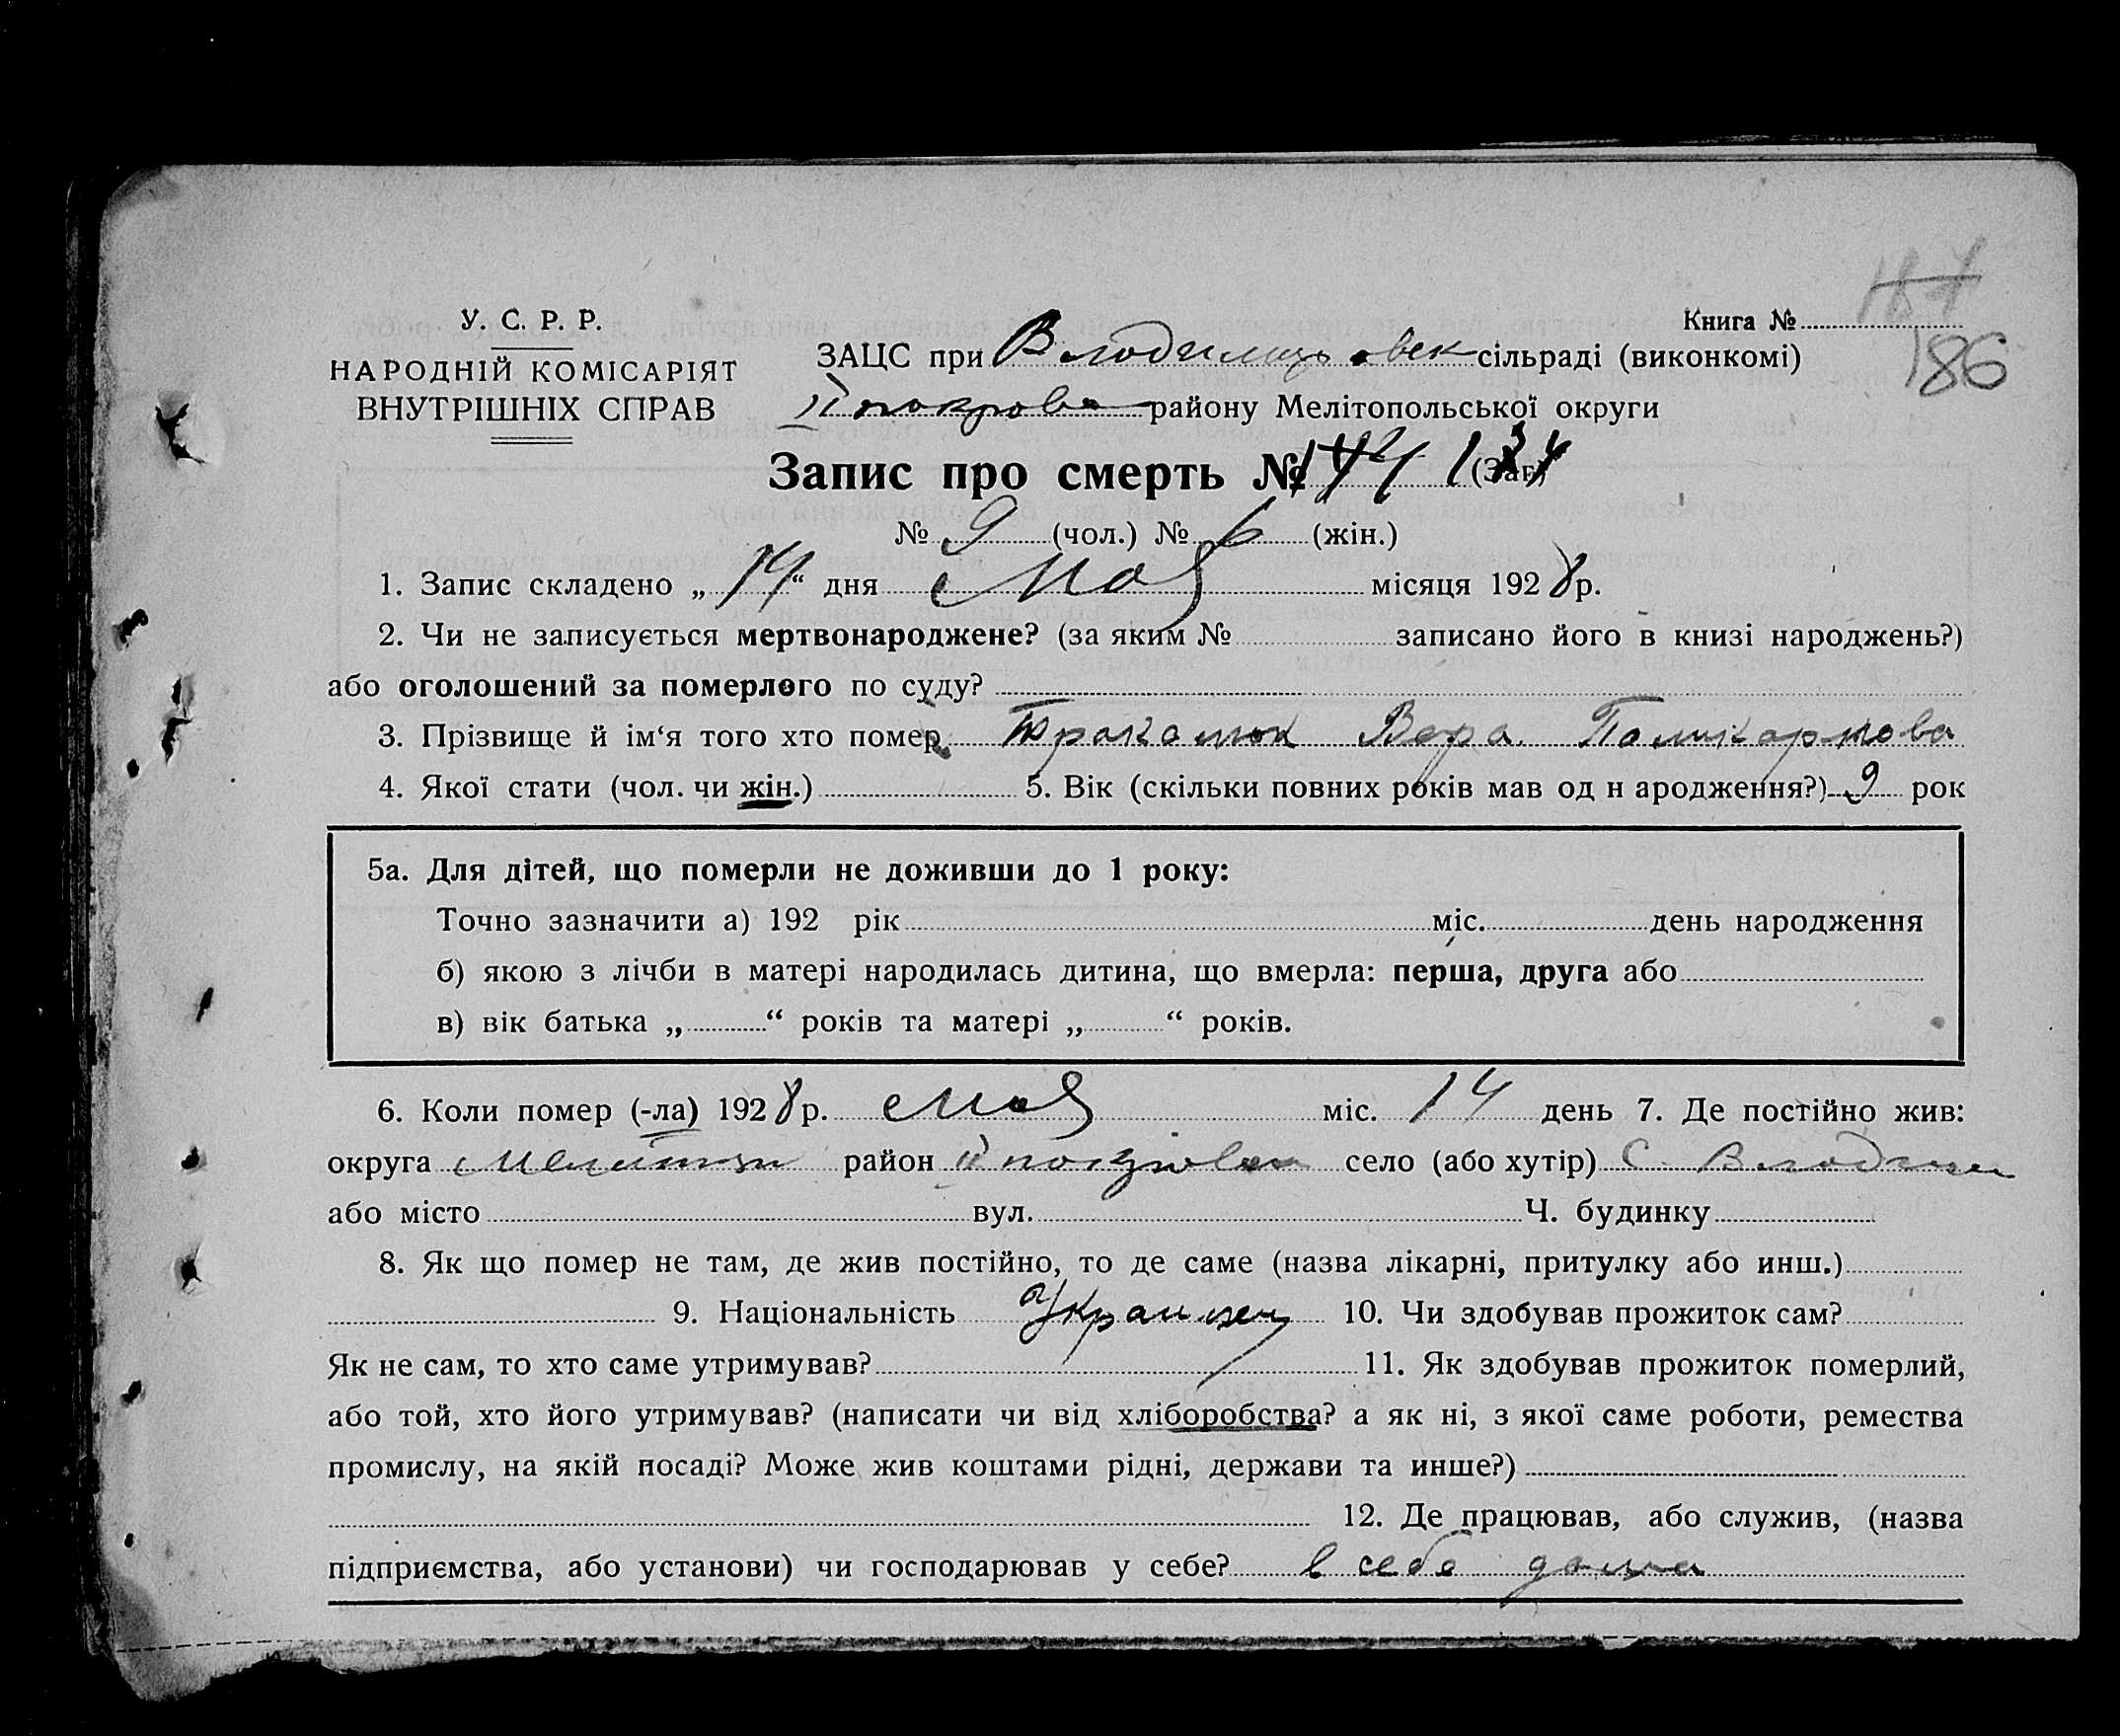 186
У. С. Р. Р.
НАРОДНІЙ КОМІСАРІЯТ
ВНУТРІШНІХ СПРАВ
Книга №
ЗАЦС при сільраді (виконкомі)
району Мелітопольської округи
Запис про смерть № 134 (Заг.)
№ 9 (чол.) № 6 (жін.)
1. Запис складено „ 14 “ дня Мая місяця 1928 р.
2. Чи не записується мертвонароджене? (за яким № записано його в книзі народжень?)
або оголошений за померлого по суду?
3. Прізвище й ім‘я того хто помер Вера Поликарпова
4. Якої стати (чол. чи жін.) 5. Вік (скільки повних років мав од н ародження?) 9 рок
5а. Для дітей, що померли не доживши до 1 року:
Точно зазначити а) 192 рік міс. день народження
б) якою з лічби в матері народилась дитина, що вмерла: перша, друга або
в) вік батька „ “ років та матері „ “ років.
6. Коли помер (-ла) 1928 р. Мая міс. 14 день 7. Де постійно жив:
округа район село (або хутір) С.
або місто вул. Ч. будинку
8. Як що помер не там, де жив постійно, то де саме (назва лікарні, притулку або инш.)
9. Національність Украинец 10. Чи здобував прожиток сам?
Як не сам, то хто саме утримував? 11. Як здобував прожиток померлий,
або той, хто його утримував? (написати чи від хліборобства? а як ні, з якої саме роботи, ремества
промислу, на якій посаді? Може жив коштами рідні, держави та инше?)
12. Де працював, або служив, (назва
підприємства, або установи) чи господарював у себе? в себе дома